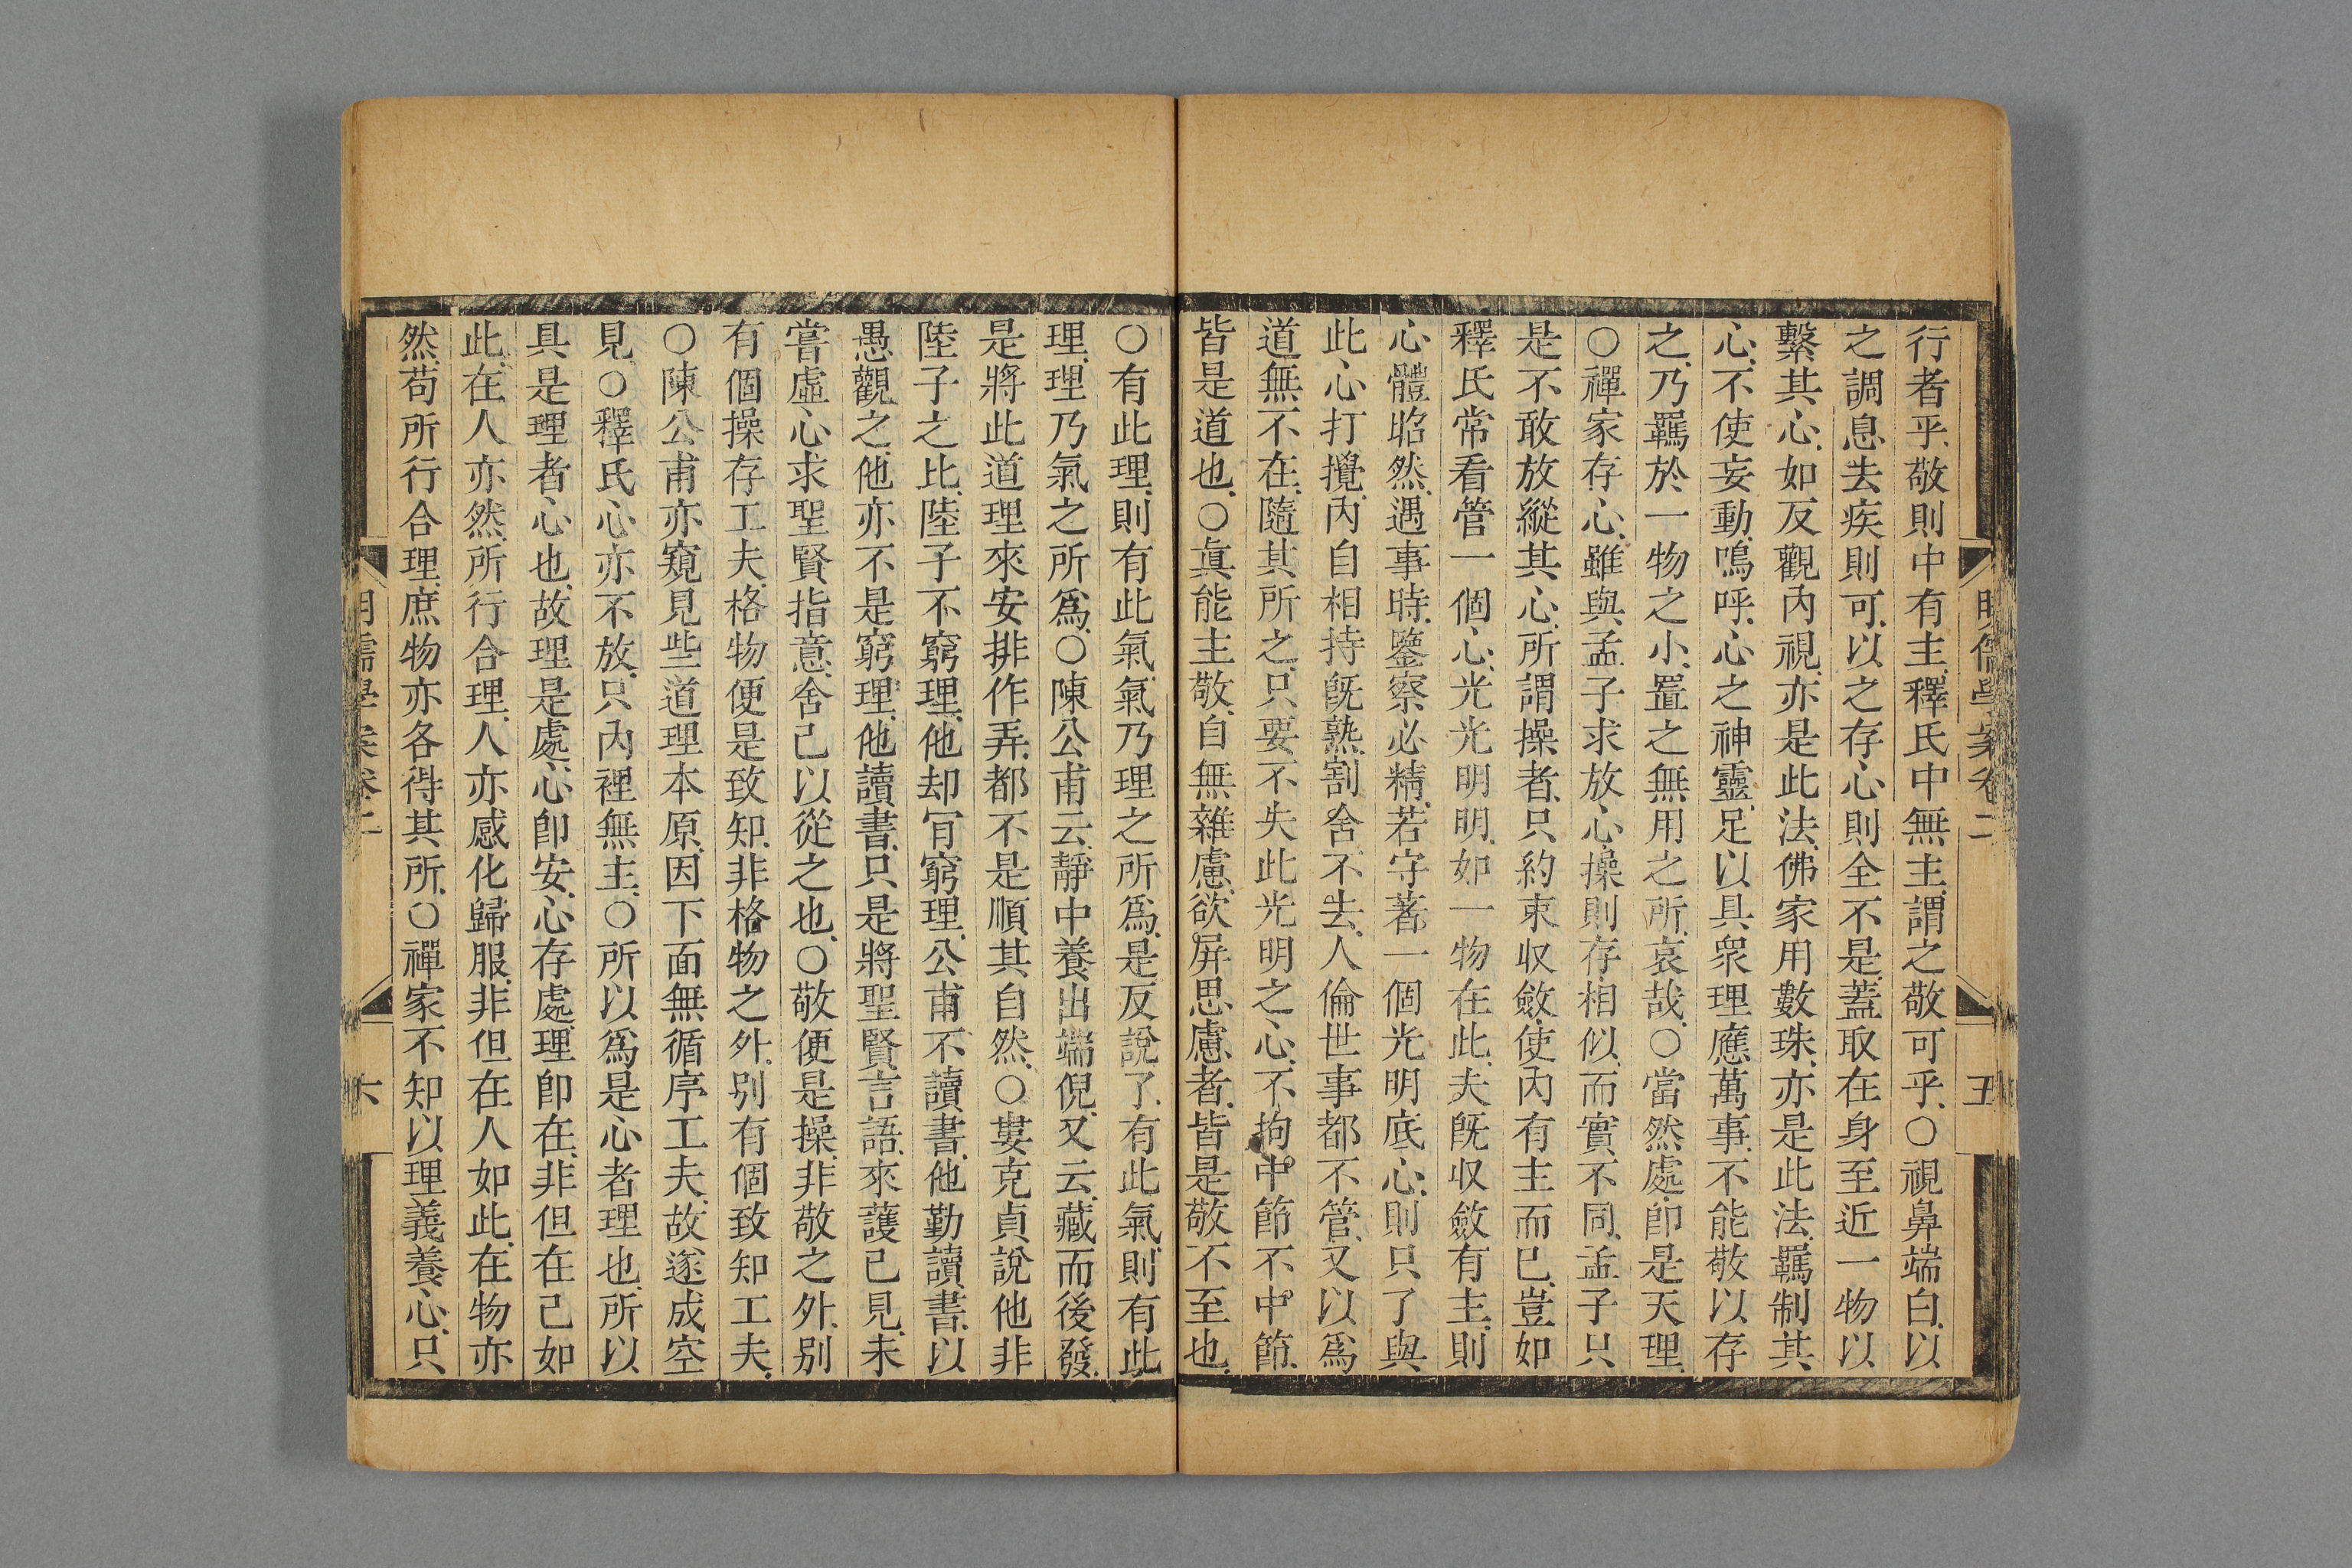 明儒學案卷二
五
行者乎、敬則中有主、釋氏中無主、謂之敬可乎、○視鼻端白、以
之調息去疾則可、以之存心則全不是、蓋取在身至近一物以
繫其心、如反觀內視、亦是此法、佛家用數珠、亦是此法、羈制其
心、不使妄動、嗚呼、心之神靈、足以具衆理應萬事、不能敬以存
之、乃羈於一物之小、置之無用之所、哀哉、○當然處卽是天理、
○禪家存心、雖與孟子求放心、操則存相似、而實不同、孟子只
是不敢放縱其心、所謂操者、只約束収斂、使內有主而已、豈如
釋氏常看管一個心、光光明明、如一物在此、夫旣収斂有主、則
心體昭然、遇事時、鑒察必精、若守著一個光明底心、則只了與
此心打攪、內自相持旣熟、割舍不去、人倫世事都不管、又以爲
道無不在、隨其所之、只要不失此光明之心、不拘中節不中節、
皆是道也、○眞能主敬、自無雜慮、欲屏思慮者、皆是敬不至也、
○有此理、則有此氣、氣乃理之所爲、是反說了、有此氣、則有此
理、理乃氣之所爲、○陳公甫云、靜中養出端倪、又云、藏而後發、
是將此道理來安排作弄、都不是順其自然、○婁克貞說他非
陸子之比、陸子不窮理、他却肯窮理、公甫不讀書、他勤讀書、以
愚觀之、他亦不是窮理、他讀書、只是將聖賢言語來護己見、未
嘗虛心求聖賢指意、舍己以從之也、○敬便是操、非敬之外、別
有個操存工夫、格物便是致知、非格物之外、別有個致知工夫、
○陳公甫亦窺見些道理本原、因下面無循序工夫、故遂成空
見、○釋氏心亦不放、只內裡無主、○所以爲是心者理也、所以
具是理者心也、故理是處、心卽安、心存處、理卽在、非但在己如
此、在人亦然、所行合理、人亦感化歸服、非但在人如此、在物亦
然、苟所行合理、庶物亦各得其所、○禪家不知以理義養心、只
明儒學案卷二
六